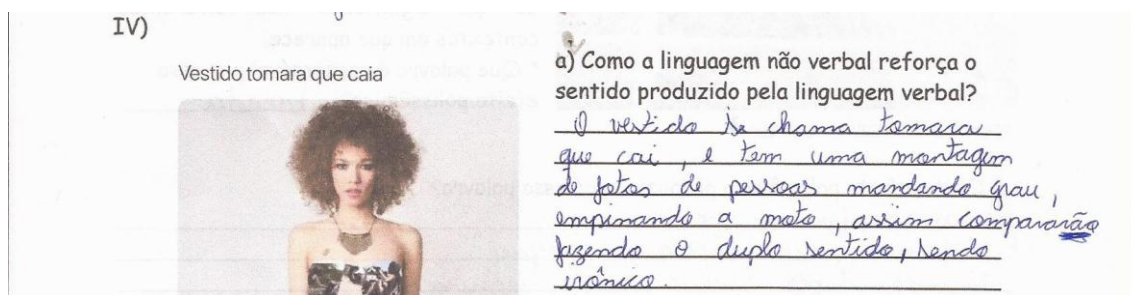 IV)
Vestido tomara que caia
a) Como a linguagem não verbal reforça o
sentido produzido pela linguagem verbal?
O vestido se chama tomara
que cai, e tem uma montagem
de fotos de pessoas mandando grau,
empinando a moto, assim compararão
fazendo o duplo sentido, sendo
irônico.